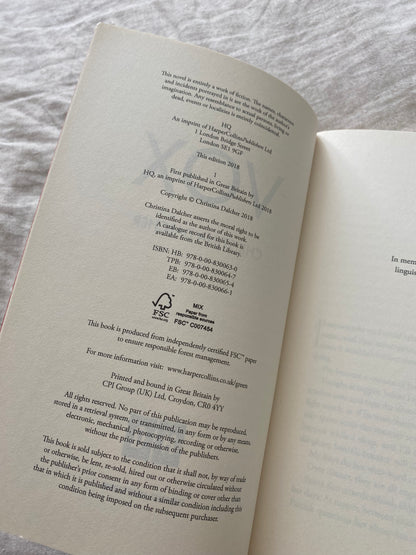 This novel is entirely a work of fiction. The names, characters
and incidents portrayed in it are the work of the author's
imagination. Any resemblance to actual persons, living or
dead, events or localities is entirely coincidental.
HQ
An imprint of HarperCollinsPublishers Ltd.
1 London Bridge Street
London SE1 9GF
This edition 2018
1
First published in Great Britain by
HQ, an imprint of HarperCollinsPublishers Ltd 2018
Copyright © Christina Dalcher 2018
Christina Dalcher asserts the moral right to be
identified as the author of this work.
A catalogue record for this book is
available from the British Library.
ISBN: HB: 978-0-00-830063-0
TPB: 978-0-00-830064-7
EB: 978-0-00-830065-4
EA: 978-0-00-830066-1
FSC
MIX
Paper from
responsible sources
FSC™ C007454
This book is produced from independently certified FSC™ paper
to ensure responsible forest management.
For more information visit: www.harpercollins.co.uk/green
Printed and bound in Great Britain by
CPI Group (UK) Ltd, Croydon, CR0 4YY
All rights reserved. No part of this publication may be reproduced,
stored in a retrieval system, or transmitted, in any form or by any means,
electronic, mechanical, photocopying, recording or otherwise,
without the prior permission of the publishers.
This book is sold subject to the condition that it shall not, by way of trade
or otherwise, be lent, re-sold, hired out or otherwise circulated without
the publisher's prior consent in any form of binding or cover other than
that in which it is published and without a similar condition including this
condition being imposed on the subsequent purchaser.
In mem
linguis